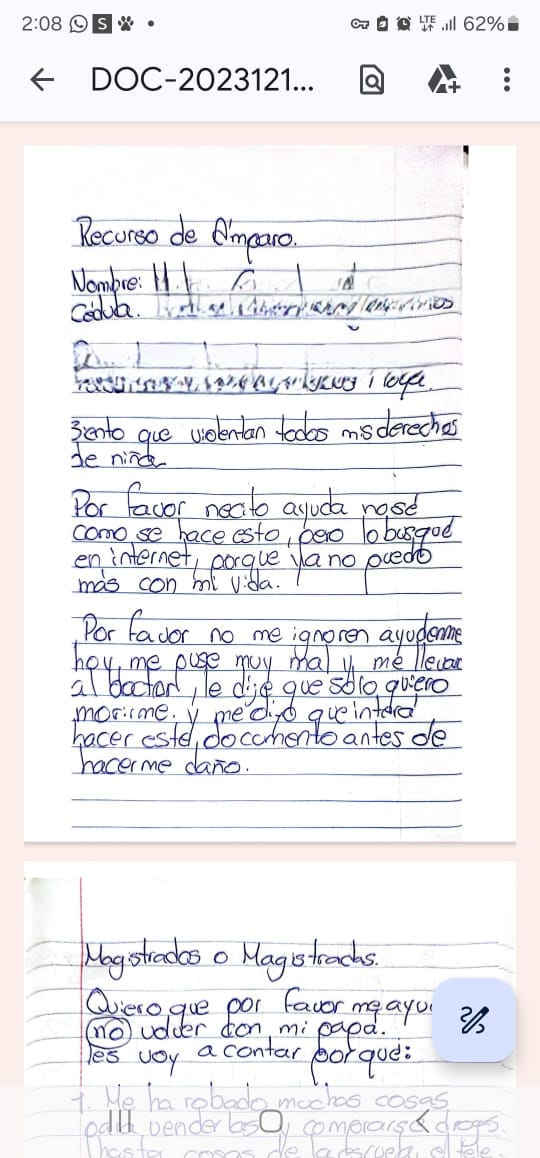 2:08 S LTE 62%
DOC-2023121...
Recurso de Amparo.
Nombre:
Cédula.
i
Siento que violentan todos mis derechos
de niña
Por favor necito ayuda nose
como se hace esto, pero lo busqué
en internet, porque ya no puedo
más con mi vida.
Por favor no me ignoren ayudenme
hoy me puse muy mal y me llevan
al doctor, le dije que sólo quiero
morirme. y me dijo que intera
hacer este, documento antes de
hacerme daño.
Magistrados o Magistradas.
Quiero que por favor me ayu
no volver con mi papá.
les voy a contar porqué:
1. Me ha robado muchas cosas
vender las y comprarse drogas.
hasta cosas de la escuela, el tele